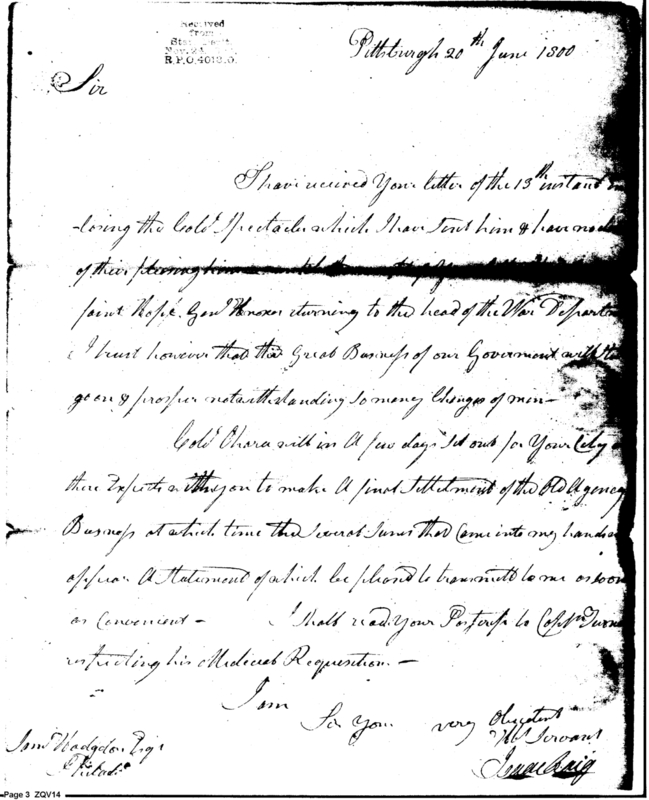 Received
from
State Dept.
Nov. 24
R.P.O. 4012.0.
Pittsburgh 20th June 1800
Sir
I have received Your letter of the 13th instant
-closing the Colo. Spectacles which I have Sent him & have no
of their pleasing him
faint Hope Genl Knoxes returning to the head of the War Departm
I trust however that the Great Business of our Goverment will
go on & prosper notwithstanding So many Changes of men—
Colo. Ohara will in A few days Set out for Your City
there Expects with you to make A final Settelment of the Old Agency
Business at which time the Several Sums that Came into my hands
appear A Statement of which be pleasd to transmitt to me as soon
as Convenient — I Shall read Your Postcrip to Captn Turner
respecting his Medical Requsition —
I am
Sir Your very Obedient
Hbl Servant
Isaac Craig
Saml Hodgdon Esqr
Philada
Page 3 ZQV14